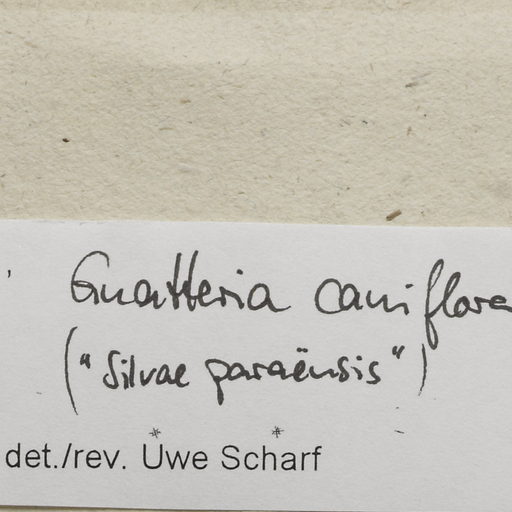 Guatteria cauliflora
("Silvae paraënsis")
det./rev. Uwe Scharf